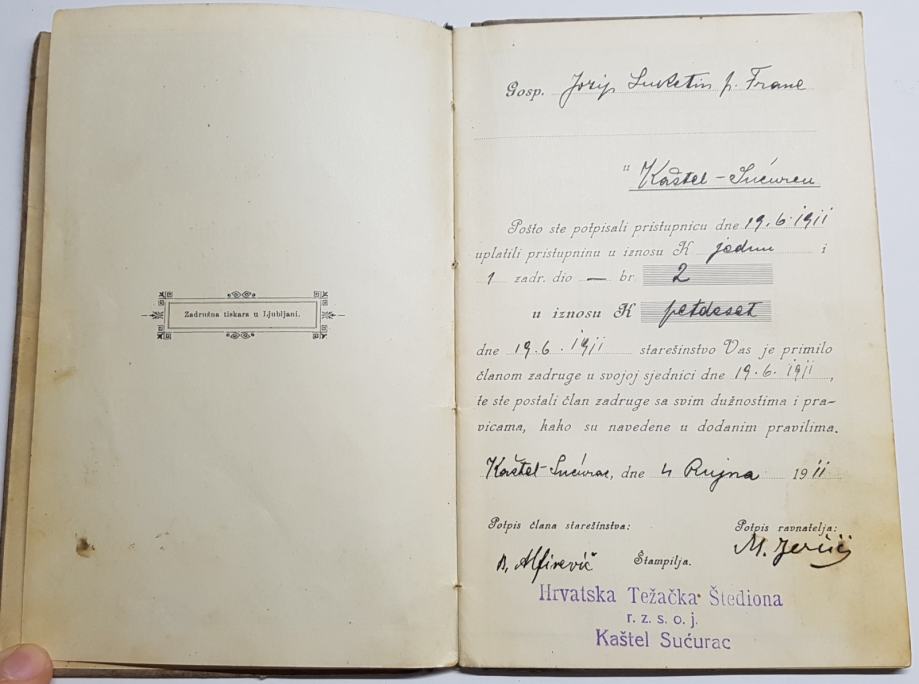 Zadružna tiskara u Ljubljani.
Gosp. Josip p. Frane
u Kaštel-Sućurcu
Pošto ste potpisali pristupnicu dne 19.6.1911
uplatili pristupninu u iznosu K jednu i
1 zadr. dio — br. 2
u iznosu K petdeset
dne 19.6.1911 starešinstvo Vas je primilo
članom zadruge u svojoj sjednici dne 19.6.1911,
te ste postali član zadruge sa svim dužnostima i pra-
vicama, kako su navedene u dodanim pravilima.
Kaštel-Sućurac, dne 4 Rujna 1911
Potpis člana starešinstva: Potpis ravnatelja:
Alfirević Štampilja. M.
Hrvatska Težačka Štediona
r. z. s. o. j.
Kaštel Sućurac